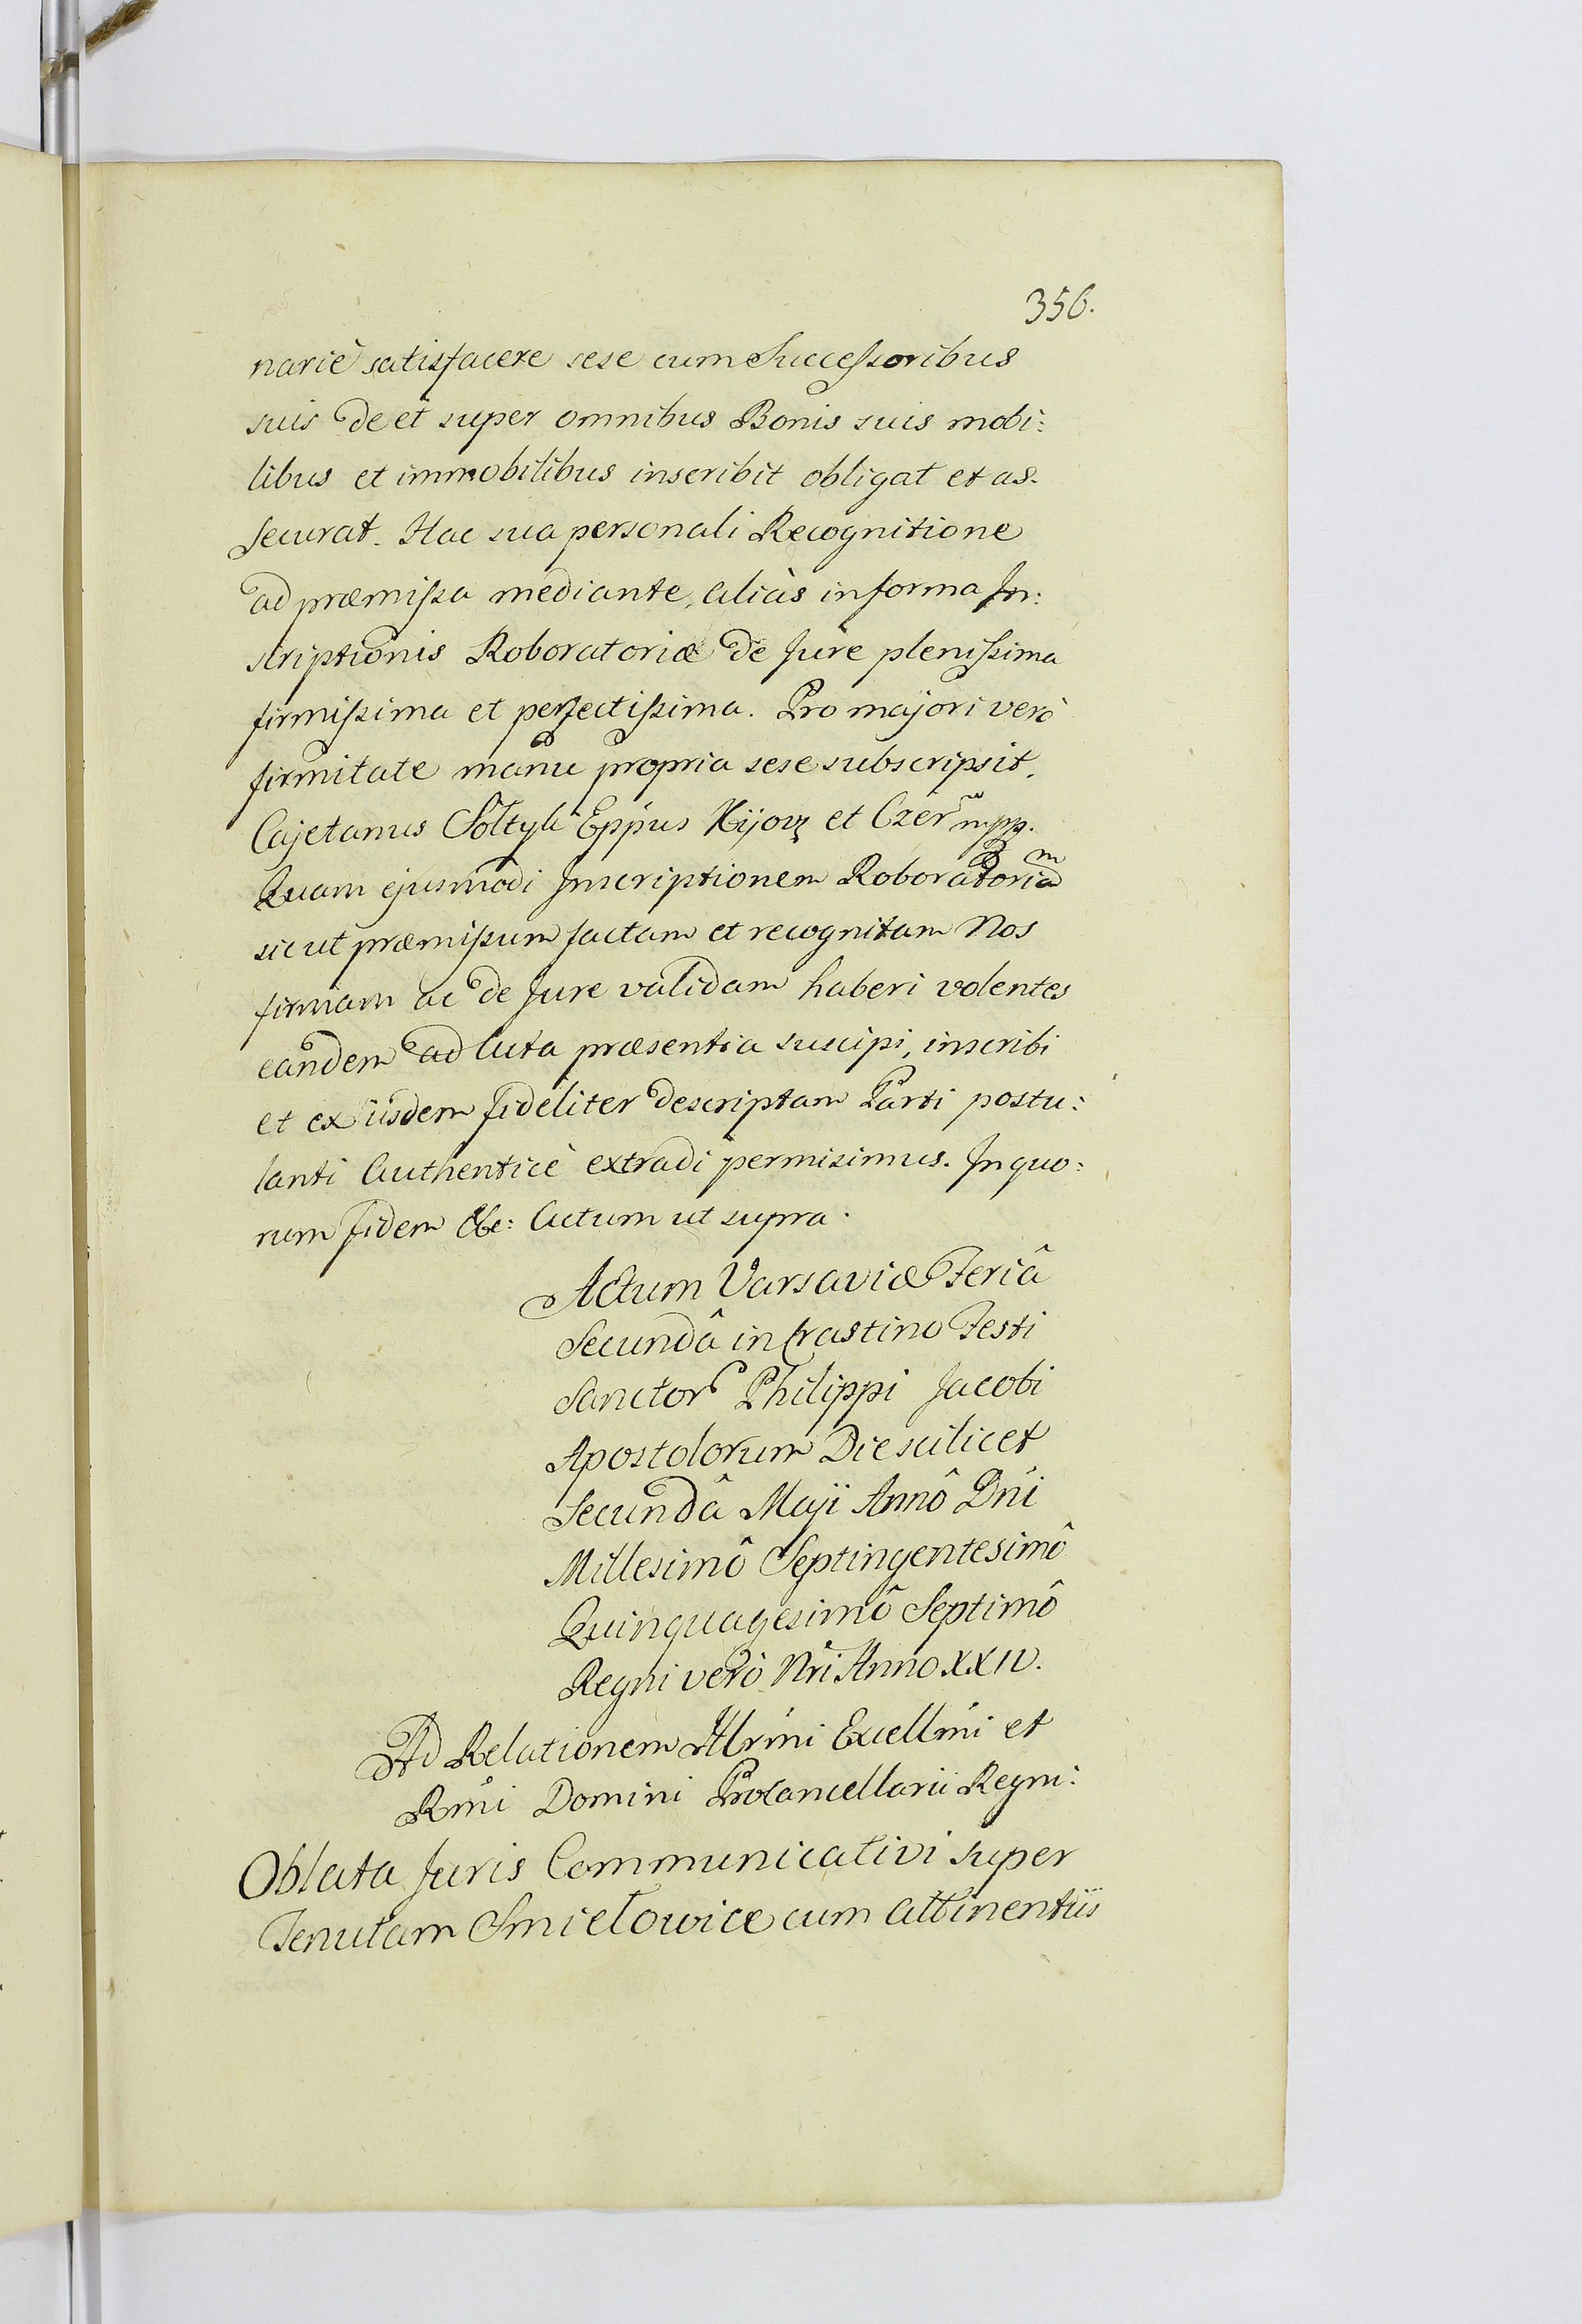 356.
nariè satisfacere sese cum Successoribus
suis de et super omnibus Bonis suis mobi:
libus et immobilibus inscribit obligat et as-
securat. Hac sua personali Recognitione
ad præmissa mediante, aliàs in forma In:
scriptionis Roboratoriæ de Jure plenissima
firmissima et perfectissima. Pro majori verò
firmitate manu propria sese subscripsit.
Cajetanus Sołtyk Eppus Kijov et Czer mpp.
Quam ejusmodi Inscriptionem Roboratoriam
sicut præmissum factam et recognitam Nos
firmam ac de Jure validam haberi volentes
eandem ad Acta præsentia suscipi, inscribi
et ex iisdem fideliter descriptam Parti postu:
lanti Authenticè extradi permisimus. In quo:
rum fidem &c: Actum ut supra.
Actum Varsaviæ Feriâ
Secundâ in Crastino Festi
Sanctor Philippi Jacobi
Apostolorum Die scilicet
Secundâ Maji Annô Dni
Millesimô Septingentesimô
Quinquagesimô Septimô
Regni verò Nri Anno XXIV.
Ad Relationem Illrmi Excellmi et
Rmi Domini Procancellarii Regni:
Oblata Juris Communicativi super
Tenutam Smiełowice cum attinentiis